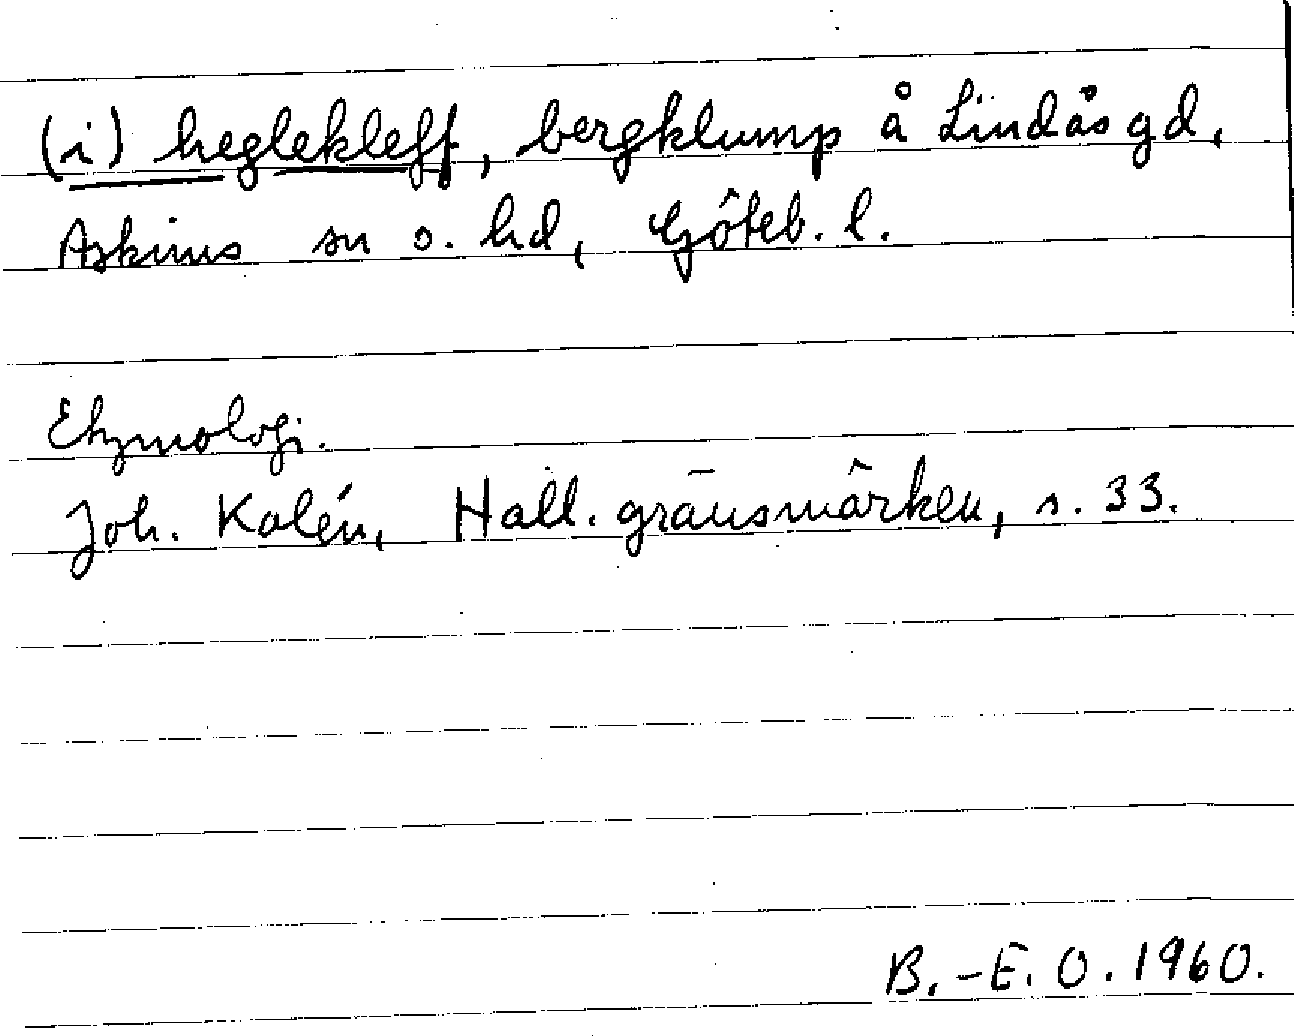 (i) heglekleff, bergklump å Lindås gd,
Askims sn o. hd, Göteb. l.
Etymologi.
Joh. Kalén, Hall. gränsmärken, s. 33.
B.-E. O. 1960.